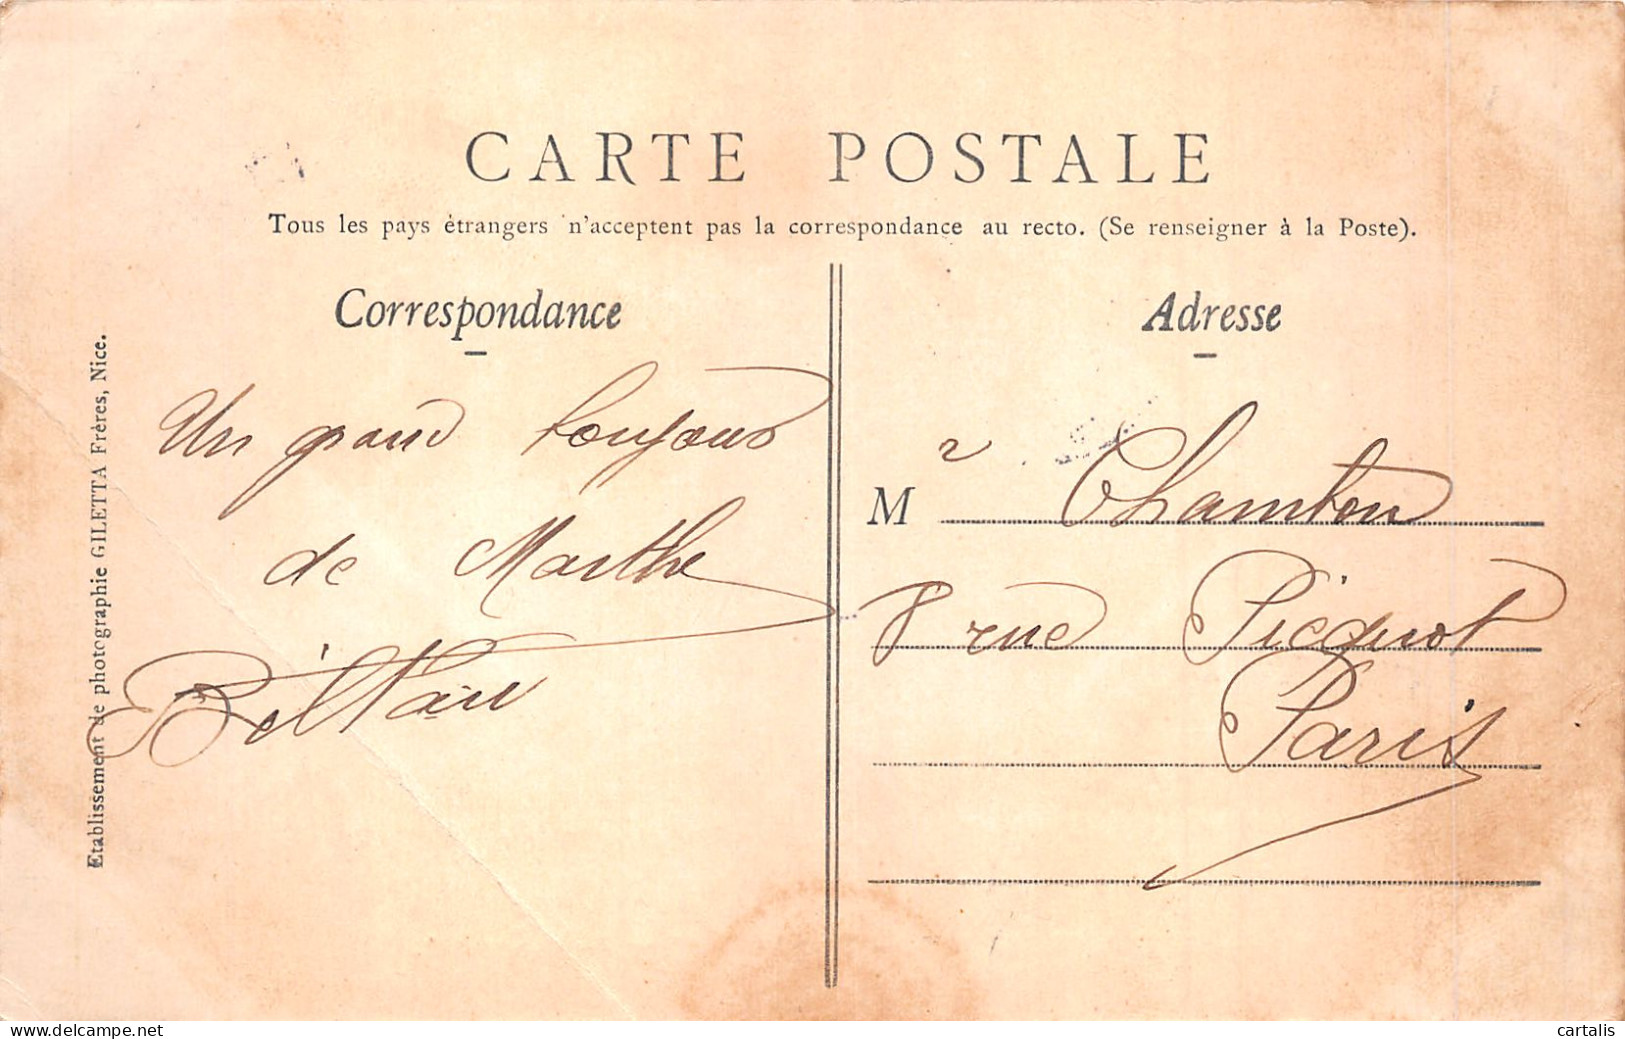 CARTE POSTALE
Tous les pays étrangers n'acceptent pas la correspondance au recto. (Se renseigner à la Poste).
Correspondance
Un grand toujours
de Marthe
Etablissement de photographie GILETTA Frères, Nice.
Adresse
M r Chambon
8 rue Picquot
Paris
cartalis